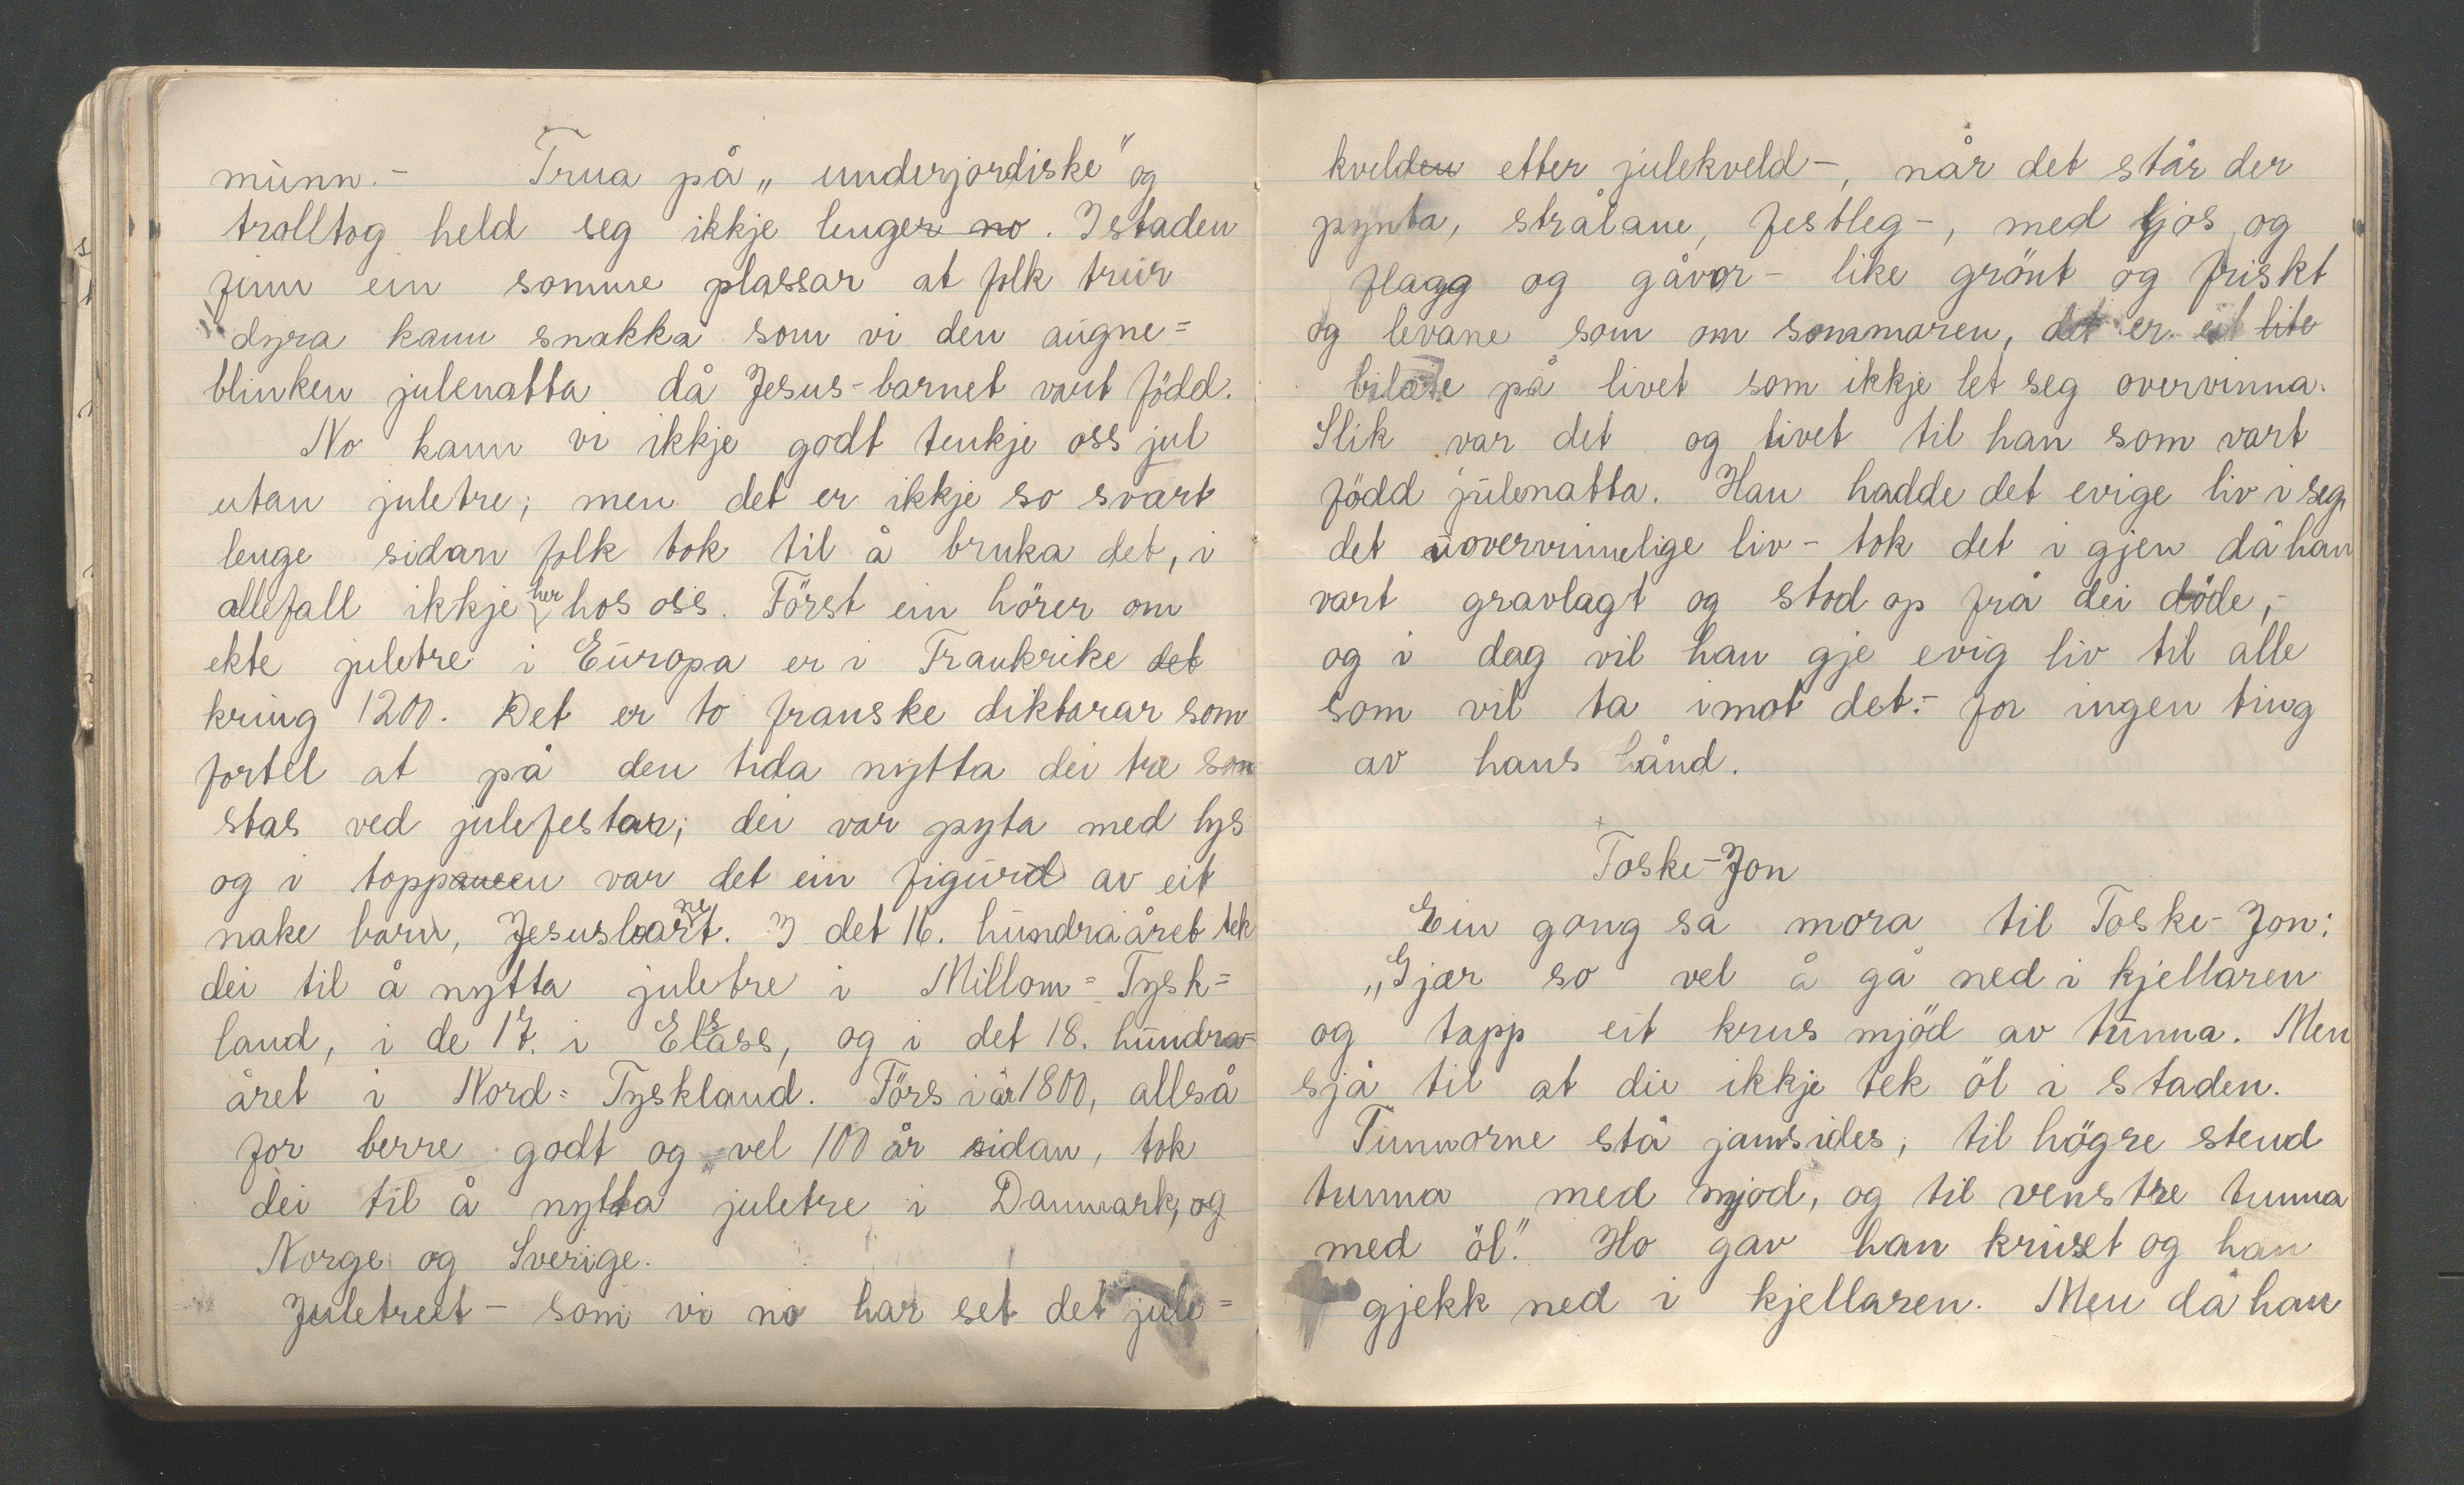 munn. – Trua på „underjordiske" og
trolltog held seg ikkje lenger no. Istaden
finn ein somme plassar at folk trur
dyra kann snakka som vi den augne=
blinken julenatta då Jesus-barnet vart född.
No kann vi ikkje godt tenkje oss jul
utan juletre; men det er ikkje so svart
lenge sidan folk tok til å bruka det, i
allefall ikkje her hos oss. Först ein hörer om
ekte juletre i Europa er i Frankrike det
kring 1200. Det er to franske diktarar som
fortel at på den tida nytta dei tre som
stas ved julefestar; dei var pyta med lys
og i toppen var det ein figur av eit
nake barn, Jesusbarnet. I det 16. hundraåret tek
dei til å nytta juletre i Millom=Tysk=
land, i de 17. i Elsass, og i det 18. hundra=
året i Nord=Tyskland. Förs i år 1800, allså
for berre godt og vel 100 år sidan, tok
dei til å nytta juletre i Danmark, og
Norge og Sverige.
Juletreet – som vi no har set det jule=
kvelden etter julekveld –, når det står der
pynta, strålane, festleg –, med ljos og
flagg og gåvor – like grönt og friskt
og levane som om sommaren, det er eit lite
bilæte på livet som ikkje let seg overvinna.
Slik var det og livet til han som vart
född julenatta. Han hadde det evige liv i seg,
det uovervinnelige liv – tok det i gjen då han
vart gravlagt og stod op frå dei döde, –
og i dag vil han gje evig liv til alle
som vil ta imot det. – for ingen ting
av hans hånd.
Toske-Jon
Ein gong sa mora til Toske-Jon:
„Gjær so vel å gå ned i kjellaren
og tapp eit krus mjöd av tunna. Men
sjå til at du ikkje tek öl i staden.
Tunnorne stå jamsides, til högre stend
tunna med mjod, og til venstre tunna
med öl." Ho gav han kruset og han
gjekk ned i kjellaren. Men då han